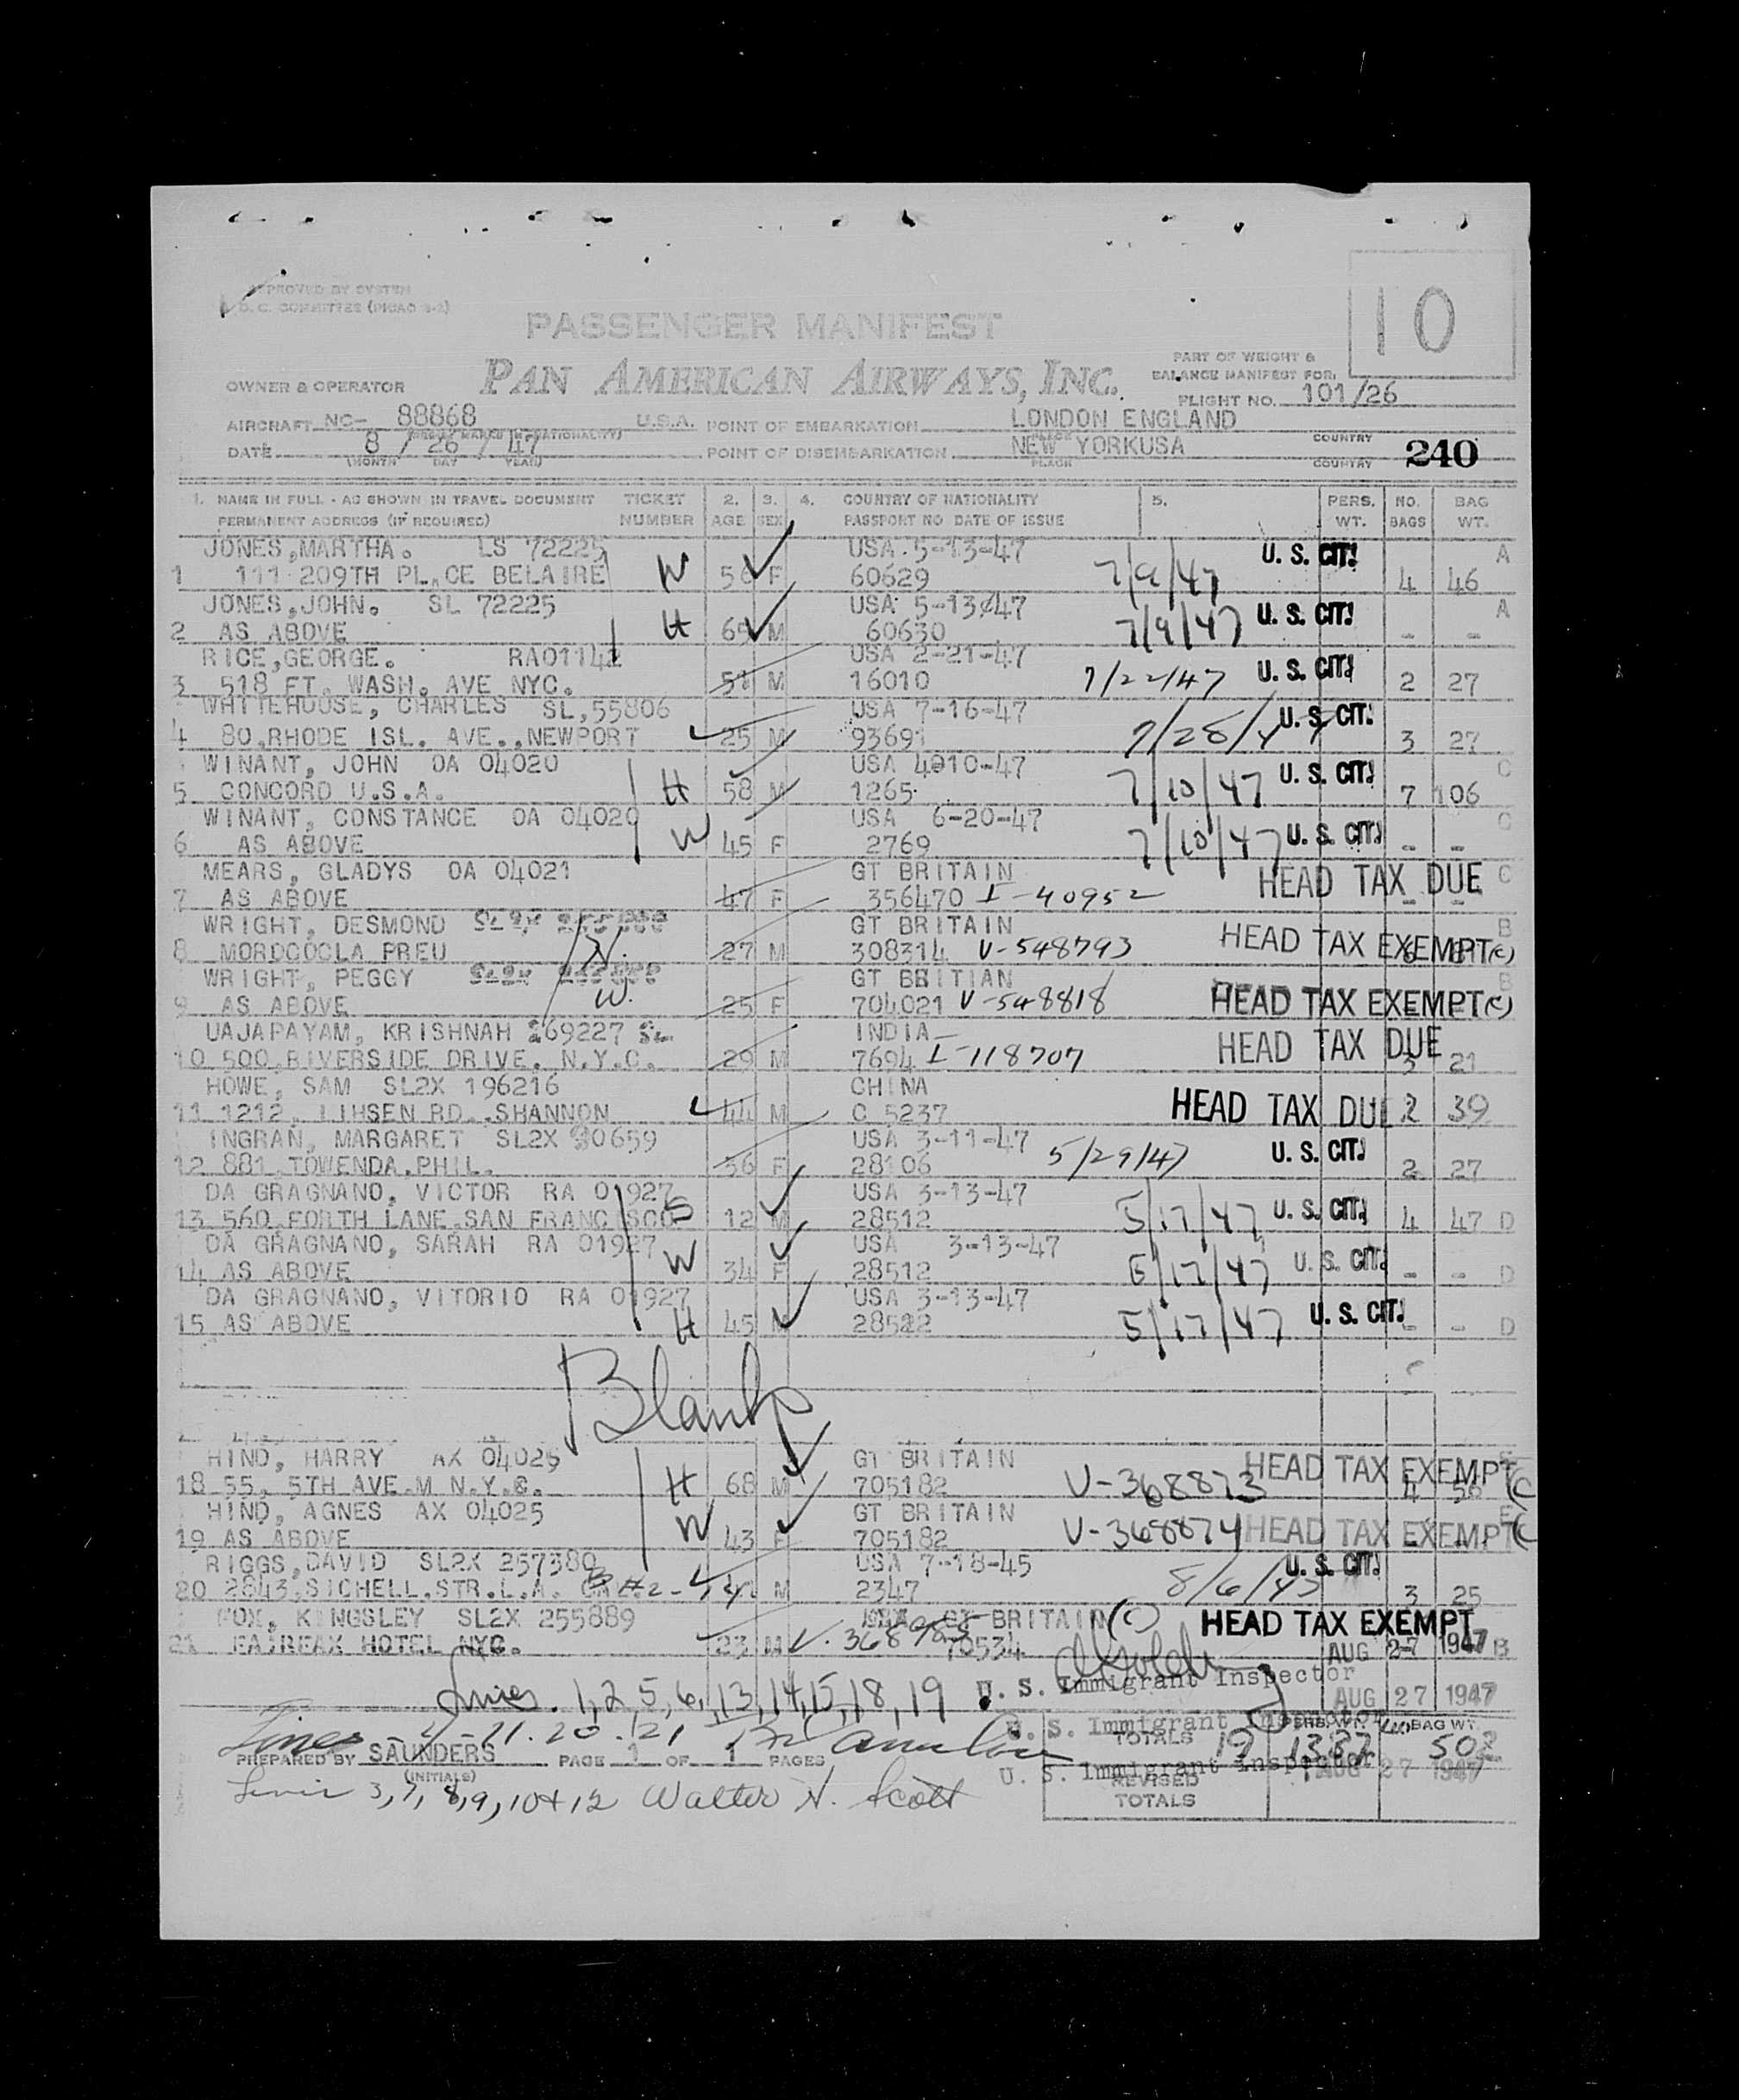 APPROVED BY SYSTEM
D. C. COMMITTEE (PICAO 3-2)
PASSENGER MANIFEST
10
PAN AMERICAN AIRWAYS, INC.
PART OF WEIGHT &
BALANCE MANIFEST FOR
OWNER & OPERATOR
FLIGHT NO. 101/26
AIRCRAFT NC- 88868 U.S.A. POINT OF EMBARKATION LONDON ENGLAND
DATE 8 / 26 / 47 POINT OF DISEMBARKATION NEW YORKUSA COUNTRY 240
(MONTH DAY YEAR) PLACE COUNTRY
1. NAME IN FULL - AS SHOWN IN TRAVEL DOCUMENT TICKET 2. 3. 4. COUNTRY OF NATIONALITY 5. PERS. NO. BAG
PERMANENT ADDRESS (IF REQUIRED) NUMBER AGE SEX PASSPORT NO DATE OF ISSUE WT. BAGS WT.
JONES,MARTHA. LS 72225 USA.5-13-47 U. S. CIT. A
1 111 209TH PL.CE BELAIRE W 56 F 60629 7/9/47 4 46
JONES,JOHN. SL 72225 USA 5-13-47 U. S. CIT. A
2 AS ABOVE H 69 M 60630 7/9/47 - -
RICE,GEORGE. RA01142 USA 2-21-47
3 518 FT. WASH. AVE NYC. 51 M 16010 7/22/47 U. S. CIT. 2 27
WHITEHOUSE, CHARLES SL,55806 USA 7-16-47 U. S. CIT.
4 80,RHODE ISL. AVE.,NEWPORT 25 M 93691 7/28/47 3 27
WINANT, JOHN OA 04020 USA 4010-47 U. S. CIT. C
5 CONCORD U.S.A. H 58 M 1265 7/10/47 7 106
WINANT, CONSTANCE OA 04020 USA 6-20-47 C
6 AS ABOVE W 45 F 2769 7/10/47 U. S. CIT. - -
MEARS, GLADYS OA 04021 GT BRITAIN HEAD TAX DUE C
7 AS ABOVE 47 F 356470 I-40952 - -
WRIGHT, DESMOND GT BRITAIN B
8 MORDCOCLA PREU H. 27 M 308314 V-548793 HEAD TAX EXEMPT(c)
WRIGHT, PEGGY GT BRITIAN B
9 AS ABOVE W. 25 F 704021 V-548818 HEAD TAX EXEMPT(c)
UAJAPAYAM, KRISHNAH 269227 SL INDIA HEAD TAX DUE
10 500,RIVERSIDE DRIVE. N.Y.C. 29 M 7694 I-118707 3 21
HOWE, SAM SL2X 196216 CHINA
11 1212, LIHSEN RD.,SHANNON 44 M C 5237 HEAD TAX DUE 2 39
INGRAN, MARGARET SL2X 30659 USA 3-11-47
12 881,TOWENDA.PHIL. 56 F 28106 5/29/47 U. S. CIT. 2 27
DA GRAGNANO, VICTOR RA 01927 USA 3-13-47
13 560,FORTH LANE.SAN FRANCISCO S 12 M 28512 5/17/47 U. S. CIT. 4 47 D
DA GRAGNANO, SARAH RA 01927 USA 3-13-47
14 AS ABOVE W 34 F 28512 5/17/47 U. S. CIT. - - D
DA GRAGNANO, VITORIO RA 01927 USA 3-13-47
15 AS ABOVE H 45 M 28512 5/17/47 U. S. CIT. - - D
Blank
HIND, HARRY AX 04025 GT BRITAIN HEAD TAX EXEMPT(C E
18 55, 5TH AVE.M N.Y.C. H 68 M 705182 V-368873 4 58
HIND, AGNES AX 04025 GT BRITAIN E
19 AS ABOVE W 43 F 705182 V-368874 HEAD TAX EXEMPT(C
RIGGS,DAVID SL2X 257380 USA 7-18-45 U. S. CIT.
20 2843,SICHELL.STR.L.A. M 2347 8/6/47 3 25
FOX, KINGSLEY SL2X 255889 GT BRITAIN (C) HEAD TAX EXEMPT
21 FAIREAX HOTEL NYC. 23 M V. 70534 AUG 27 1947 B
Lines. 1,2,5,6,13,14,15,18,19 U. S. Immigrant Inspector AUG 27 1947
Lines 4-11.20.21 U. S. Immigrant Inspector
TOTALS 19 1387 BAG WT. 502
PREPARED BY SAUNDERS PAGE 1 OF 1 PAGES
(INITIALS) U. S. Immigrant Inspector AUG 27 1947
REVISED
TOTALS
Lines 3,7,8,9,10+12 Walter H. Scott